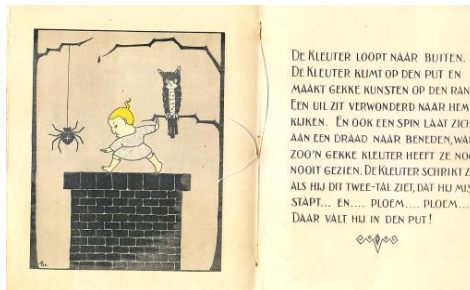 DE KLEUTER LOOPT NAAR BUITEN.
DE KLEUTER KLIMT OP DEN PUT EN
MAAKT GEKKE KUNSTEN OP DEN RAN
EEN UIL ZIT VERWONDERD NAAR HEM
KIJKEN. EN OOK EEN SPIN LAAT ZICH
AAN EEN DRAAD NAAR BENEDEN, WA
ZOO'N GEKKE KLEUTER HEEFT ZE NOO
NOOIT GEZIEN. DE KLEUTER SCHRIKT Z
ALS HIJ DIT TWEE-TAL ZIET, DAT HIJ MIS
STAPT... EN.... PLOEM.... PLOEM....
DAAR VALT HIJ IN DEN PUT!